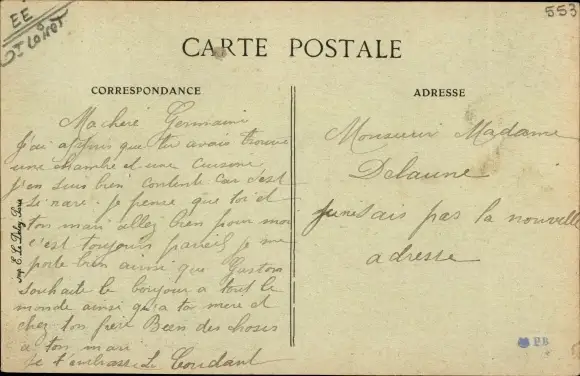 EE
Dt LOIRET
553
CARTE POSTALE
CORRESPONDANCE
ADRESSE
Ma cheré Germaine
J'ai appris que tu avais trouvé
une chambre et une cuisine
j'en suis bien contente car c'est
si rare. je pense que toi et
ton mari allez bien pour moi
c'est toujours pareil je me
porte bien ainsi que Gaston
souhaite le bonjour a tout le
monde ainsi qu'a ta mere et
chez ton frère Bien des choses
a ton mari
je t'embrasse
Monsieur Madame
Delaune
je ne sais pas la nouvelle
adresse
Imp. E. Le Deley, Paris
PB